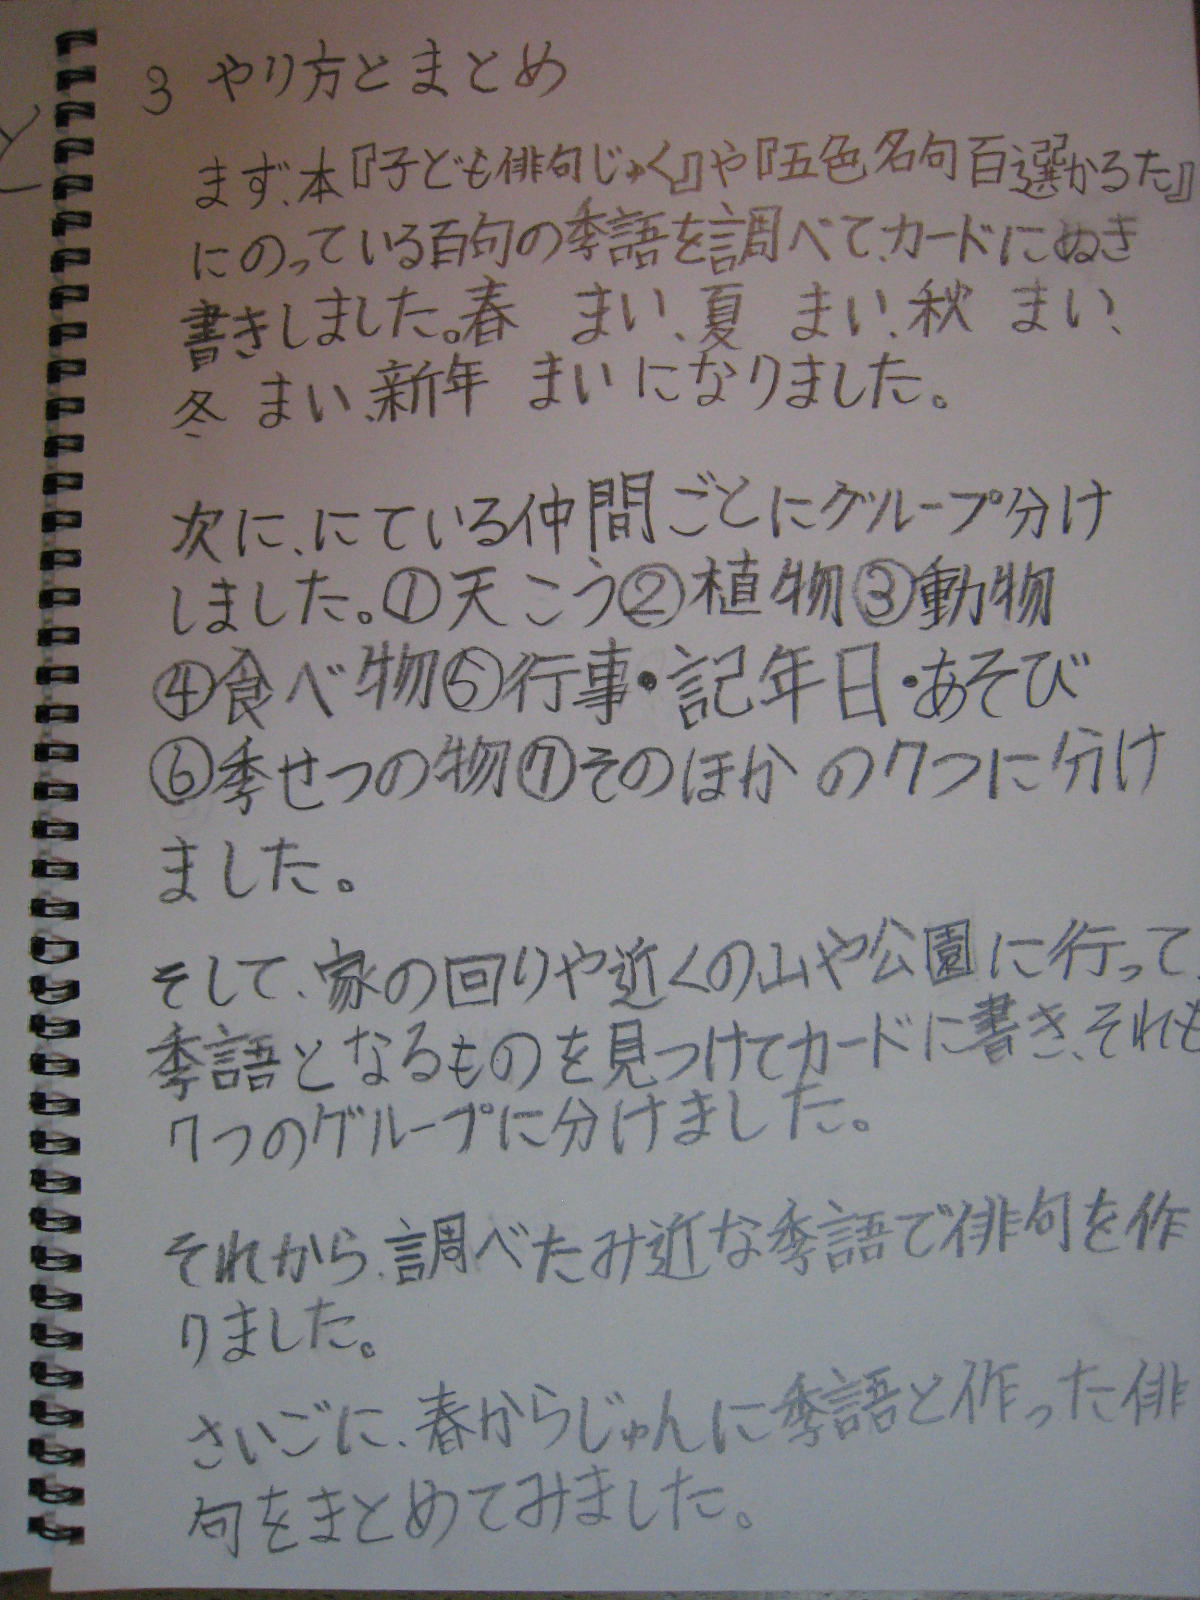 3 やり方とまとめ
まず、本『子ども俳句じゅく』や『五色名句百選かるた』
にのっている百句の季語を調べて、カードにぬき
書きしました。春　まい、夏　まい、秋　まい、
冬　まい、新年　まいになりました。
次に、にている仲間ごとにグループ分け
しました。①天こう②植物③動物
④食べ物⑤行事・記年日・あそび
⑥季せつの物⑦そのほか の7つに分け
ました。
そして、家の回りや近くの山や公園に行って、
季語となるものを見つけてカードに書き、それも
7つのグループに分けました。
それから、調べたみ近な季語で俳句を作
りました。
さいごに、春からじゅんに季語と作った俳
句をまとめてみました。